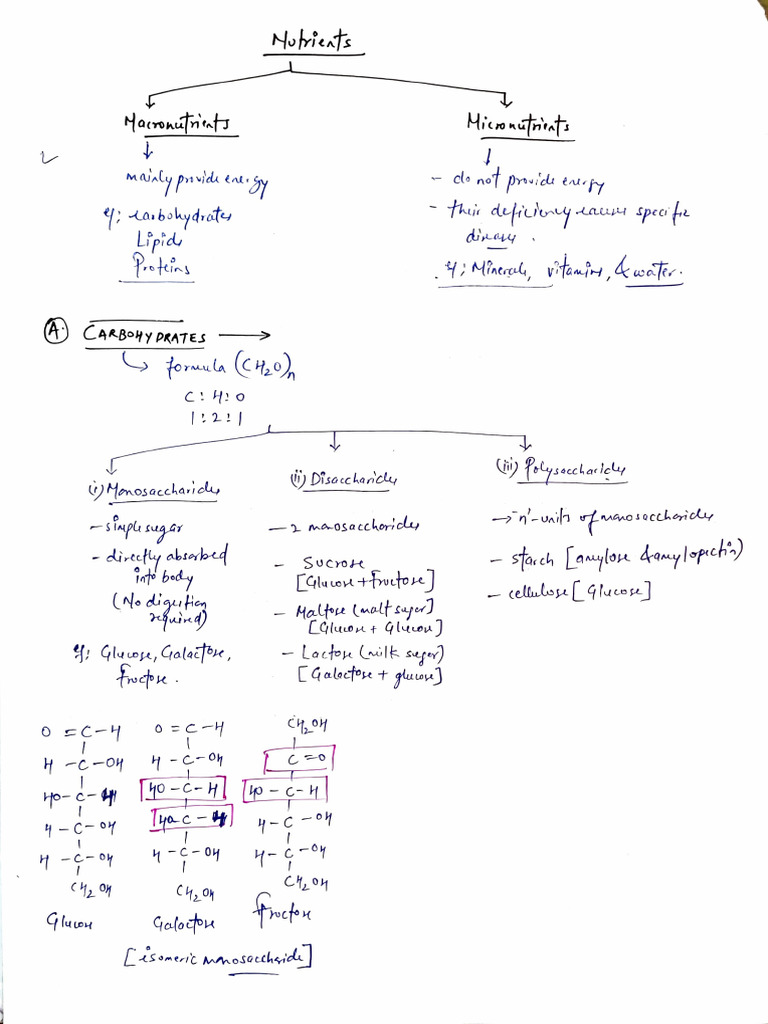 Nutrients
Macronutrients
Micronutrients
mainly provide energy
eg; carbohydrates
Lipids
Proteins
- do not provide energy
- their deficiency causes specific
disease.
eg; Minerals, vitamins, & water.
A. CARBOHYDRATES →
formula (CH2O)n
C:H:O
1:2:1
(i) Monosaccharides
- simple sugar
- directly absorbed
into body
(No digestion
required)
eg: Glucose, Galactose,
fructose.
(ii) Disaccharides
- 2 monosaccharides
- Sucrose
[Glucose + fructose]
- Maltose (malt sugar)
[Glucose + Glucose]
- Lactose (milk sugar)
[Galactose + glucose]
(iii) Polysaccharides
→ 'n'-units of monosaccharides
- starch [amylose & amylopectin)
- cellulose [Glucose]
O=C-H
H-C-OH
HO-C-H
H-C-OH
H-C-OH
CH2OH
Glucose
O=C-H
H-C-OH
HO-C-H
HO-C-H
H-C-OH
CH2OH
Galactose
CH2OH
C=O
HO-C-H
H-C-OH
H-C-OH
CH2OH
fructose
[isomeric monosaccharide]